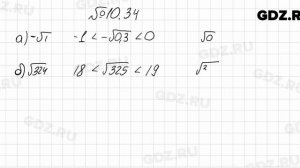 GDZ.RU
№10.34
а) -√1 -1 < -√0,3 < 0 √0
б) √324 18 < √325 < 19 √
GDZ.RU